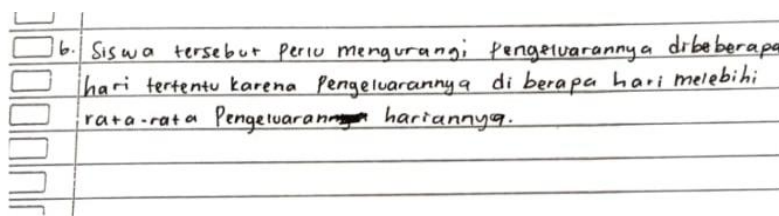 6. Siswa tersebut perlu mengurangi pengeluarannya dibeberapa
hari tertentu karena Pengeluarannya di berapa hari melebihi
rata-rata Pengeluaran hariannya.